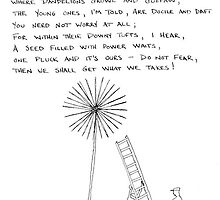 WHERE DANDELIONS GROWL AND GUFFAW,
THE YOUNG ONES, I'M TOLD, ARE DOCILE AND DAFT
YOU NEED NOT WORRY AT ALL;
FOR WITHIN THEIR DOWNY TUFTS, I HEAR,
A SEED FILLED WITH POWER WAITS,
ONE PLUCK AND IT'S OURS - DO NOT FEAR,
THEN WE SHALL GET WHAT WE TAKES!